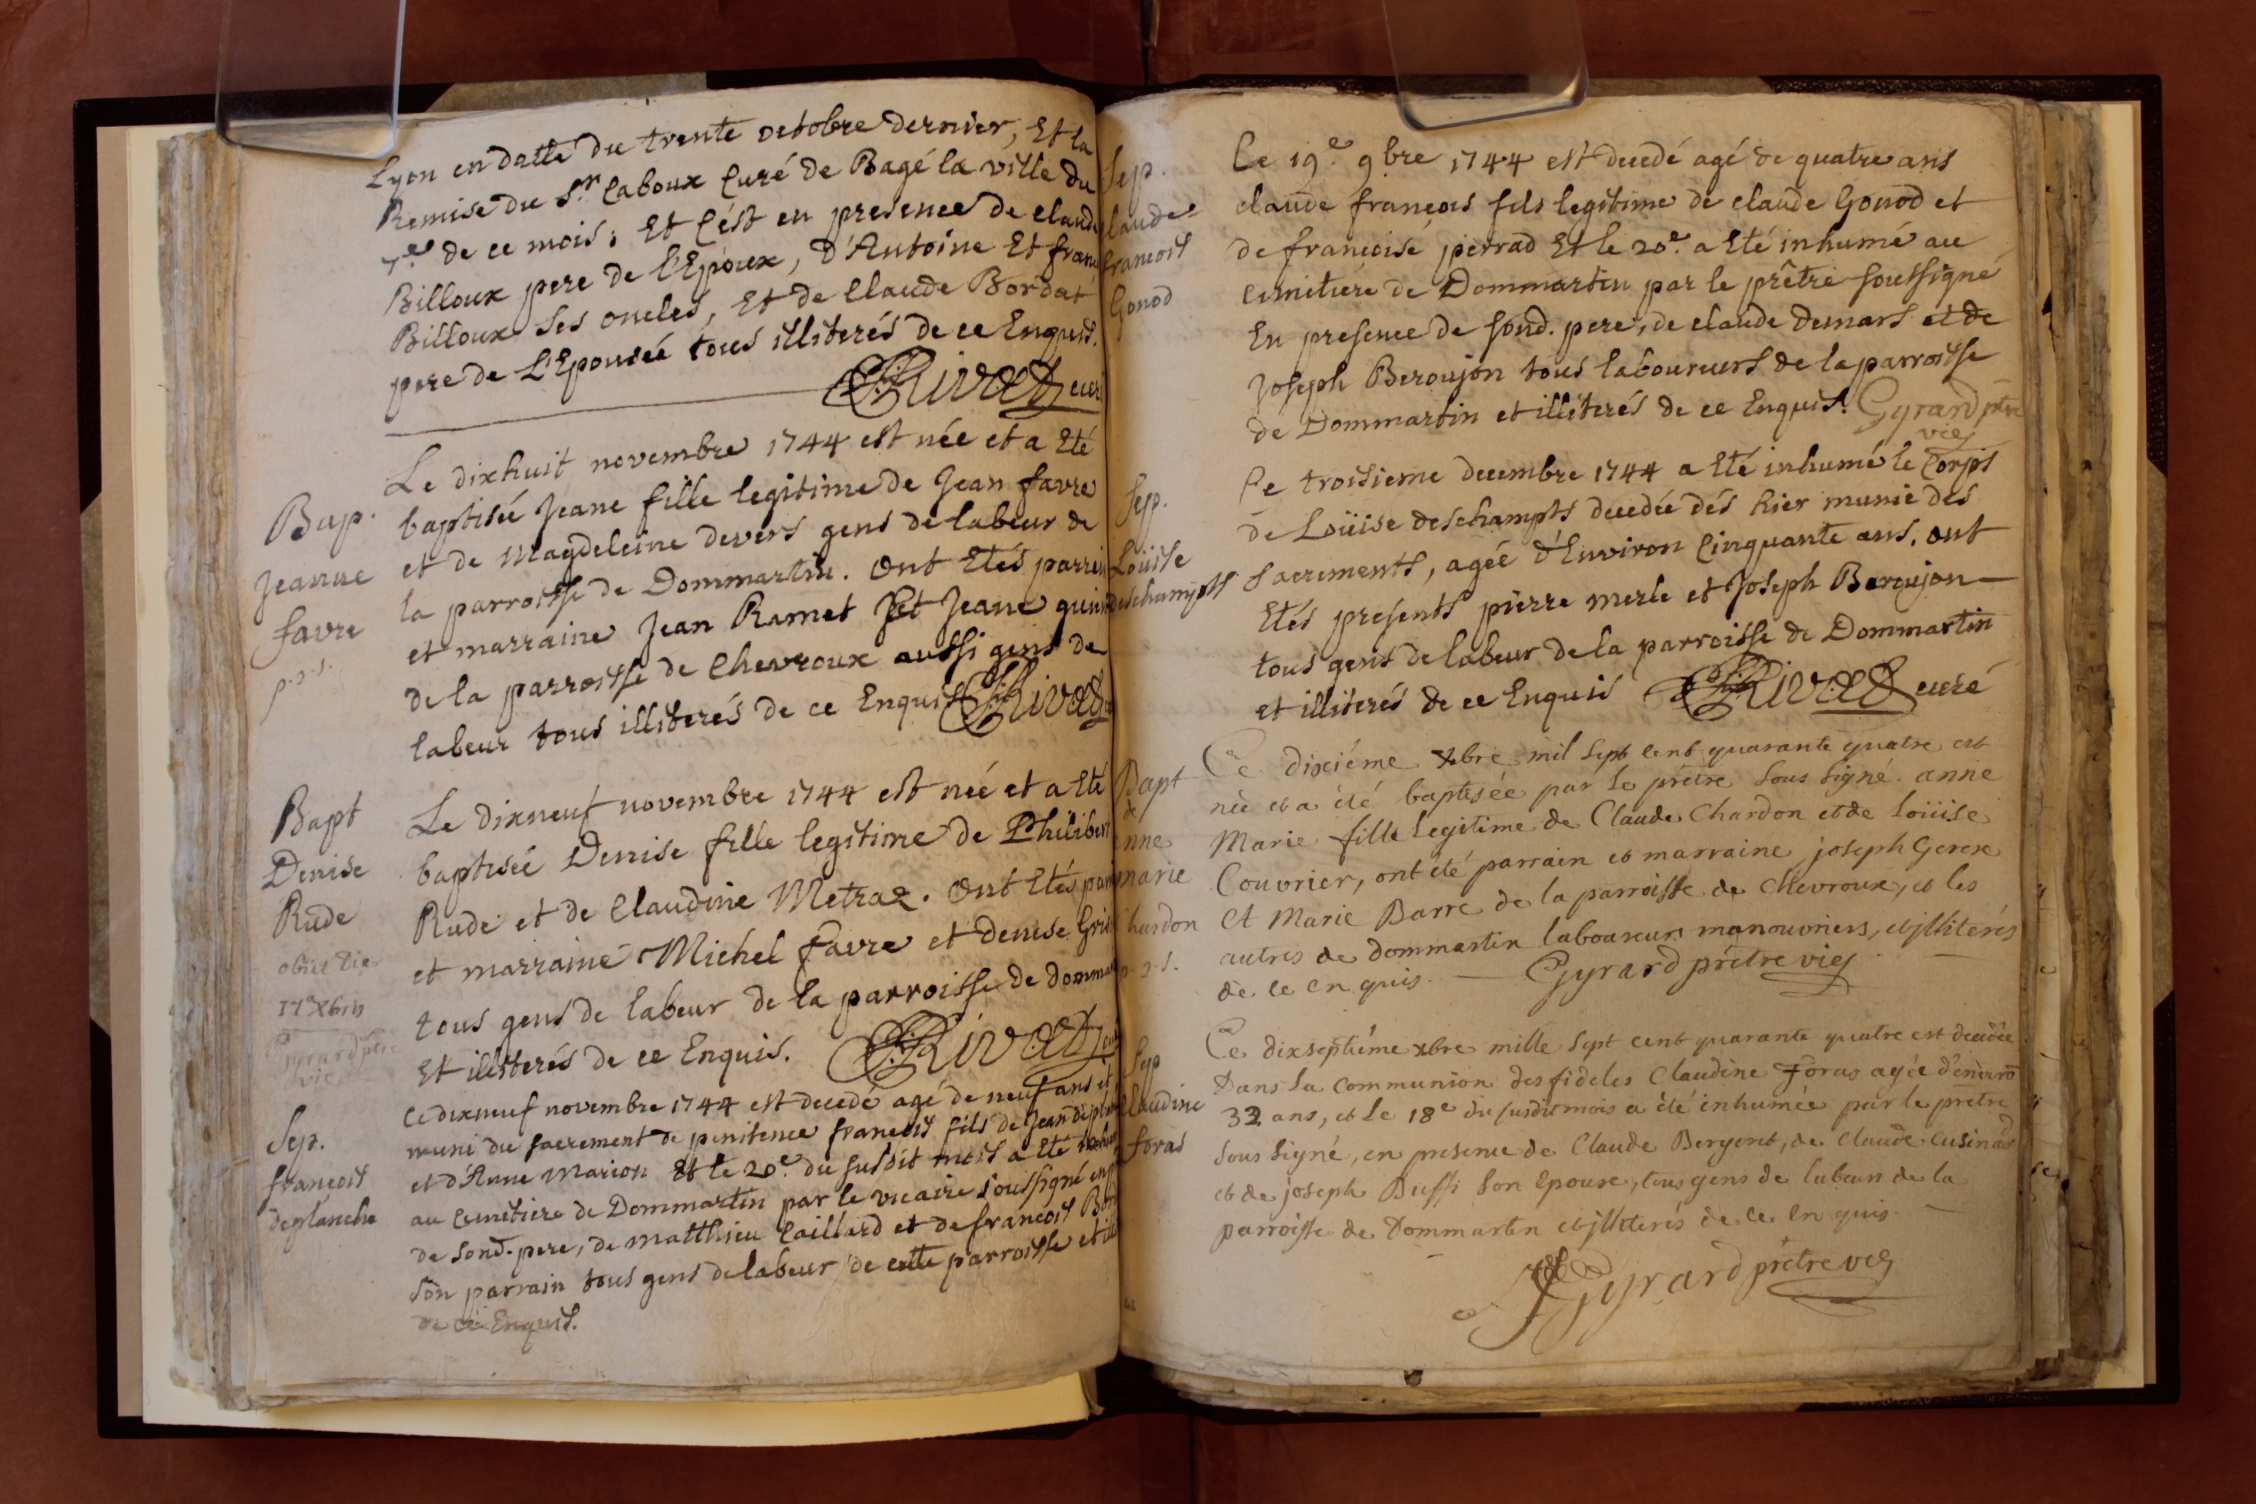 Lyon en datte du trente octobre dernier, Et la
Remise du Sr. Caboux Curé de Bagé la ville du
7e. de ce mois; Et C'ést en presence de claude
Billoux pere de l'Epoux, d'Antoine Et franc
Billoux ses oncles, Et de Claude Bordat
pere de L'Epousée tous illiterés de ce Enquis.
Rivat curé
Bap.
Jeanne
favre
p. 2 s.
Le dixhuit novembre 1744 est née et a Eté
baptisée Jeane fille legitime de Jean favre
et de Magdeleine devers gens de labeur de
la parroisse de Dommartin. Ont Etés parrein
et marraine Jean Ramet Et Jeane
de la parroisse de Chevroux aussi gens de
labeur tous illiterés de ce Enquis Rivat
Bapt
Denise
Rude
obiit die
17a Xbris
Gyrard ptre
vic
Le dixneuf novembre 1744 est née et a Eté
baptisée Denise fille legitime de Philibert
Rude et de Claudine Metraz. Ont Etés parr
et marraine Michel favre et denise
tous gens de labeur de la parroisse de dommar
Et illiterés de ce Enquis. Rivat
Sep.
françois
deplanche
Ce dixneuf novembre 1744 est decedé agé de neuf ans et
muni du sacrement de penitence françois fils de Jean deplan
et d'Anne Marion Et le 20e. du susdit mois a Eté inhu
au cemetiere de Dommartin par le vicaire soussigné en p
de sond. pere, de matthieu Caillard et de françois
son parrain tous gens de labeur de cette parroisse et ill
de ce Enquis.
Sep.
laude
francois
Gonod
Le 19e. 9bre 1744 est decedé agé de quatre ans
claude françois fils legitime de claude Gonod et
de françoise perrad Et le 20e. a Eté inhumé au
cimitiere de Dommartin par le prêtre soussigné
En presence de sond. pere, de claude demars et de
Joseph Beroujon tous laboureurs de la parroisse
de Dommartin et illiterés de ce Enquis. Gyrard ptre
vic
Sep.
Loüise
deschamps
Le troisieme decembre 1744 a Eté inhumé le Corps
de Loüise deschamps decedée dés hier munie des
sacrements, agée d'Environ Cinquante ans. Ont
Etés presents pierre merle et Joseph Beroujon
tous gens de labeur de la parroisse de Dommartin
et illiterés de ce Enquis Rivat curé
Bapt
de
nne
marie
hardon
p. 2 s.
Ce dixiéme xbre mil sept cent quarante quatre est
née et a été baptisée par le prêtre sous signé. anne
Marie fille legitime de Claude Chardon et de Loüise
Couvrier, ont été parrain et marraine joseph
et Marie Barre de la parroisse de Chevroux, et les
autres de dommartin laboureurs manouvriers, et jlliterés
de ce en quis. Gyrard prêtre vic
Sep
laudine
foras
Ce dixseptiéme xbre mille sept cent quarante quatre est decedée
Dans la communion des fideles Claudine Foras agée d'environ
32 ans, et le 18e du susdit mois a été inhumée par le prêtre
sous signé, en presence de Claude Bergeret, de Claude cusinad
et de joseph Buffi son Epoux, tous gens de labeur de la
parroisse de Dommartin et jlliterés de ce en quis.
Gyrard prêtre vic